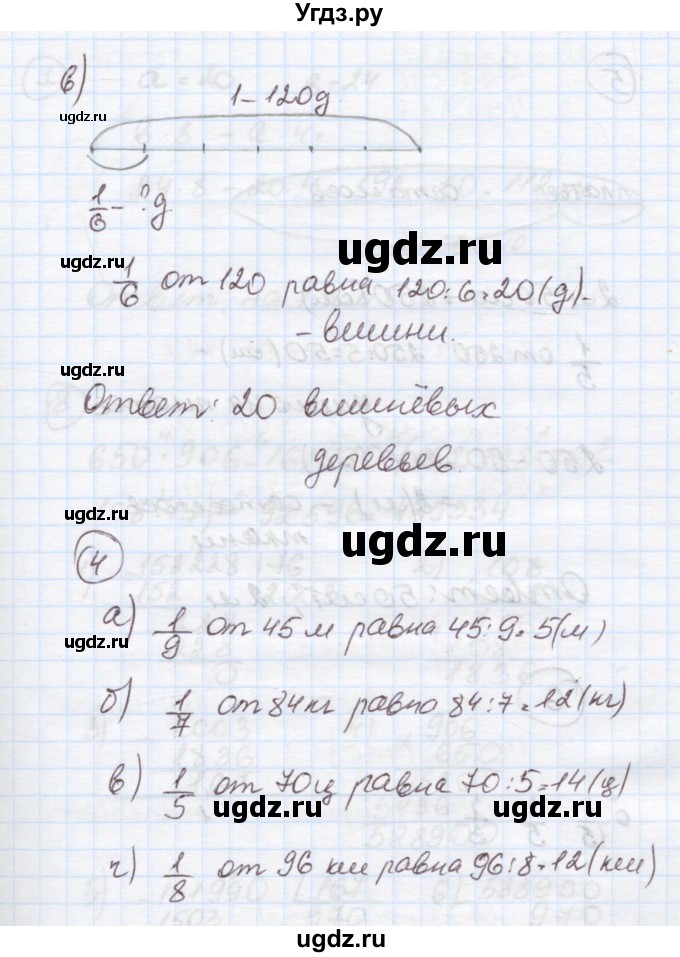 Угдз.ру
в)
1 – 120д.
ugdz.ru
1/6 – ?д
ugdz.ru
1/6 от 120 равна 120:6=20(д)-
- вишни.
ugdz.ru
Ответ: 20 вишнёвых
деревьев.
ugdz.ru
ugdz.ru
4
а) 1/9 от 45м равна 45:9=5(м)
ugdz.ru
б) 1/7 от 84кг равно 84:7=12(кг)
в) 1/5 от 70ц равна 70:5=14(ц)
ugdz.ru ugdz.ru
г) 1/8 от 96 км равна 96:8=12(км)
ugdz.ru